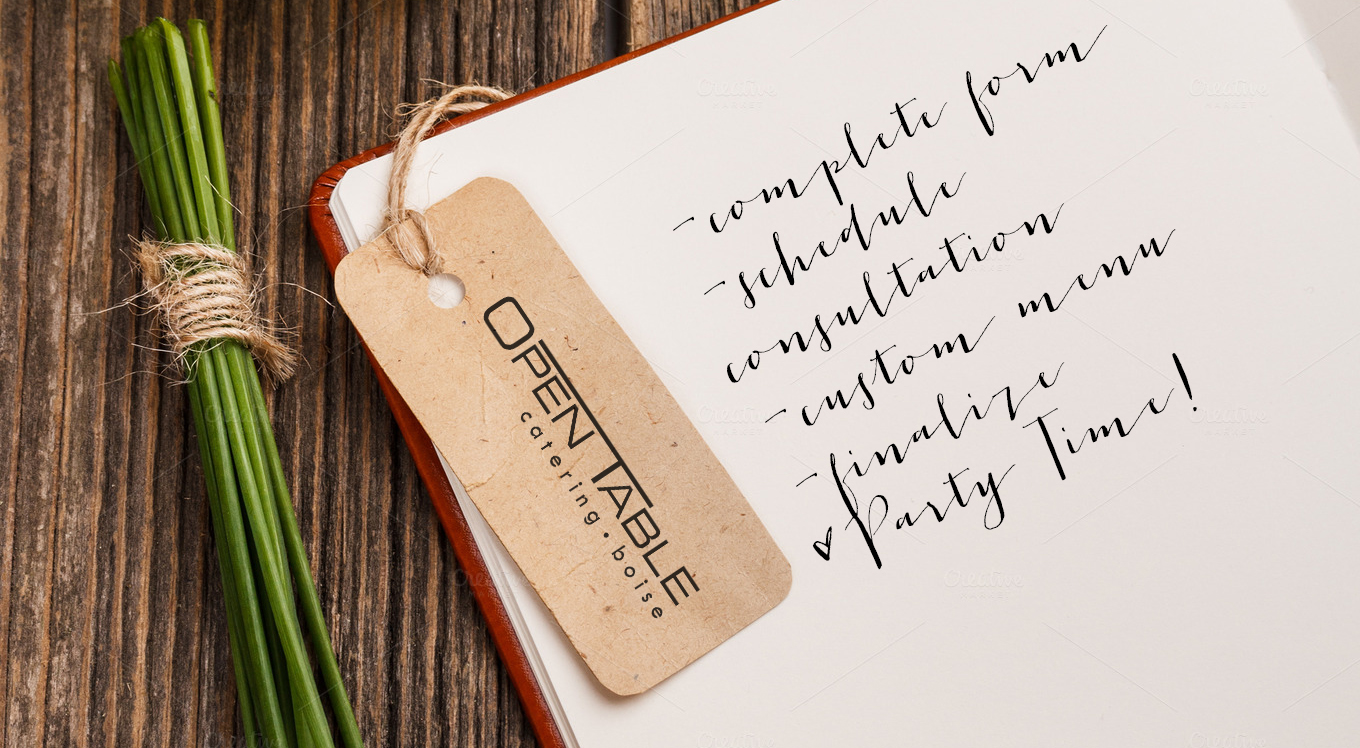 OPEN TABLE
catering • boise
-complete form
-schedule
consultation
-custom menu
-finalize
♥Party Time!
Creative
MARKET